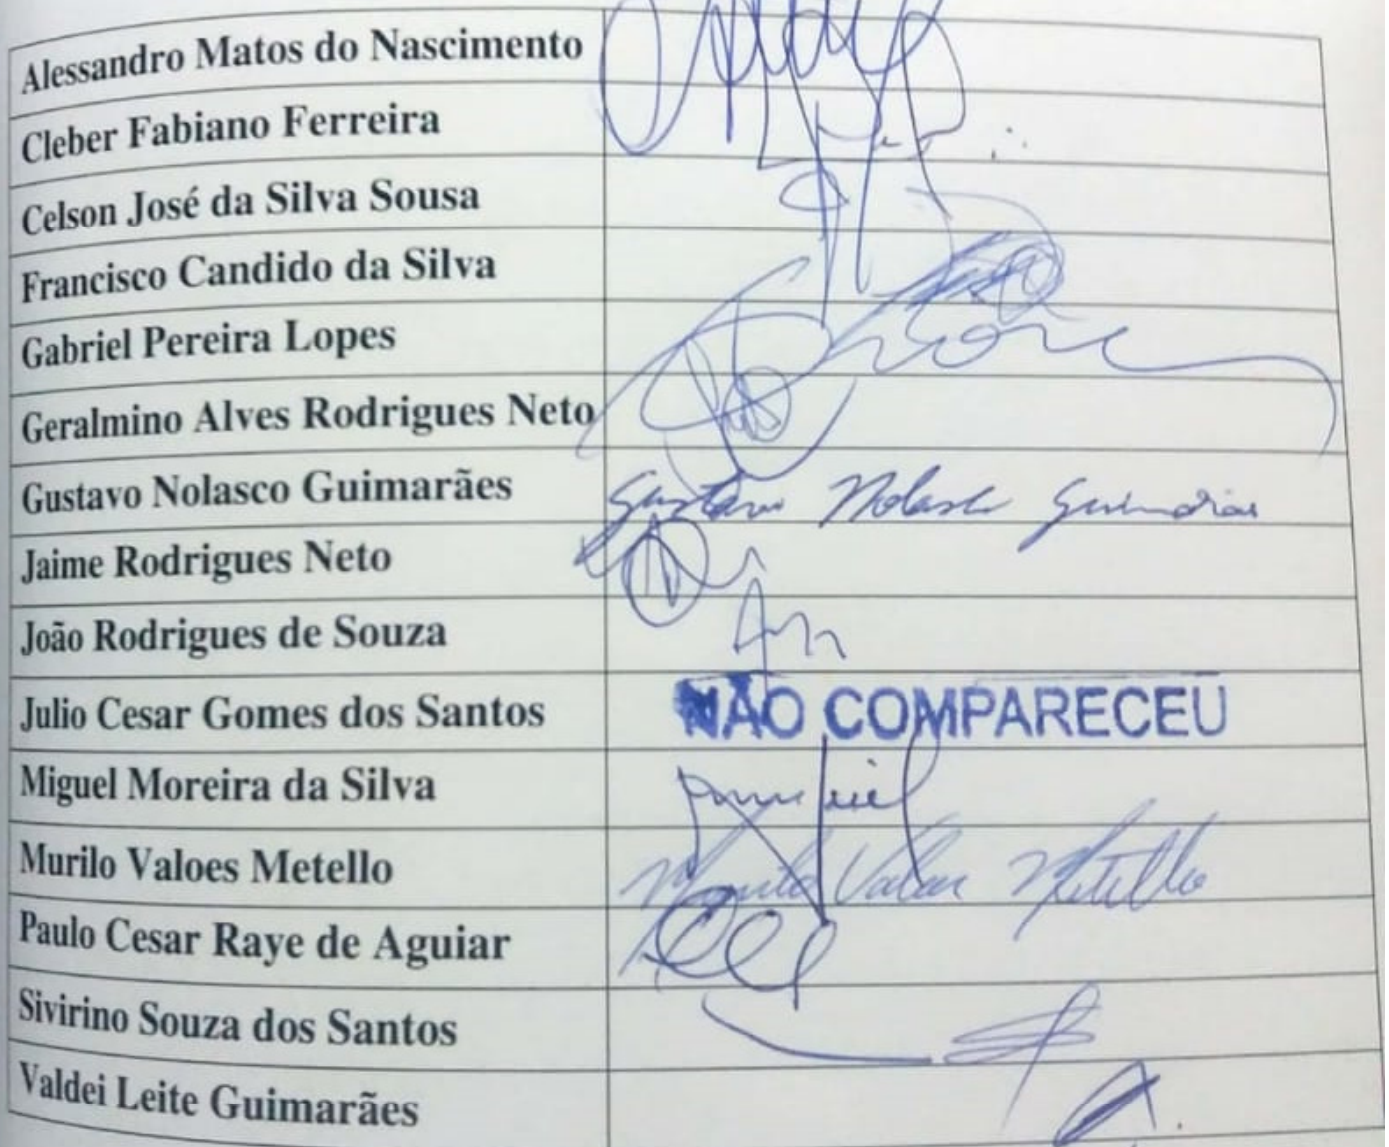 Alessandro Matos do Nascimento
Cleber Fabiano Ferreira
Celson José da Silva Sousa
Francisco Candido da Silva
Gabriel Pereira Lopes
Geralmino Alves Rodrigues Neto
Gustavo Nolasco Guimarães Gustavo Nolasco Guimarães
Jaime Rodrigues Neto
João Rodrigues de Souza
Julio Cesar Gomes dos Santos NÃO COMPARECEU
Miguel Moreira da Silva
Murilo Valoes Metello Murilo Valoes Metello
Paulo Cesar Raye de Aguiar
Sivirino Souza dos Santos
Valdei Leite Guimarães